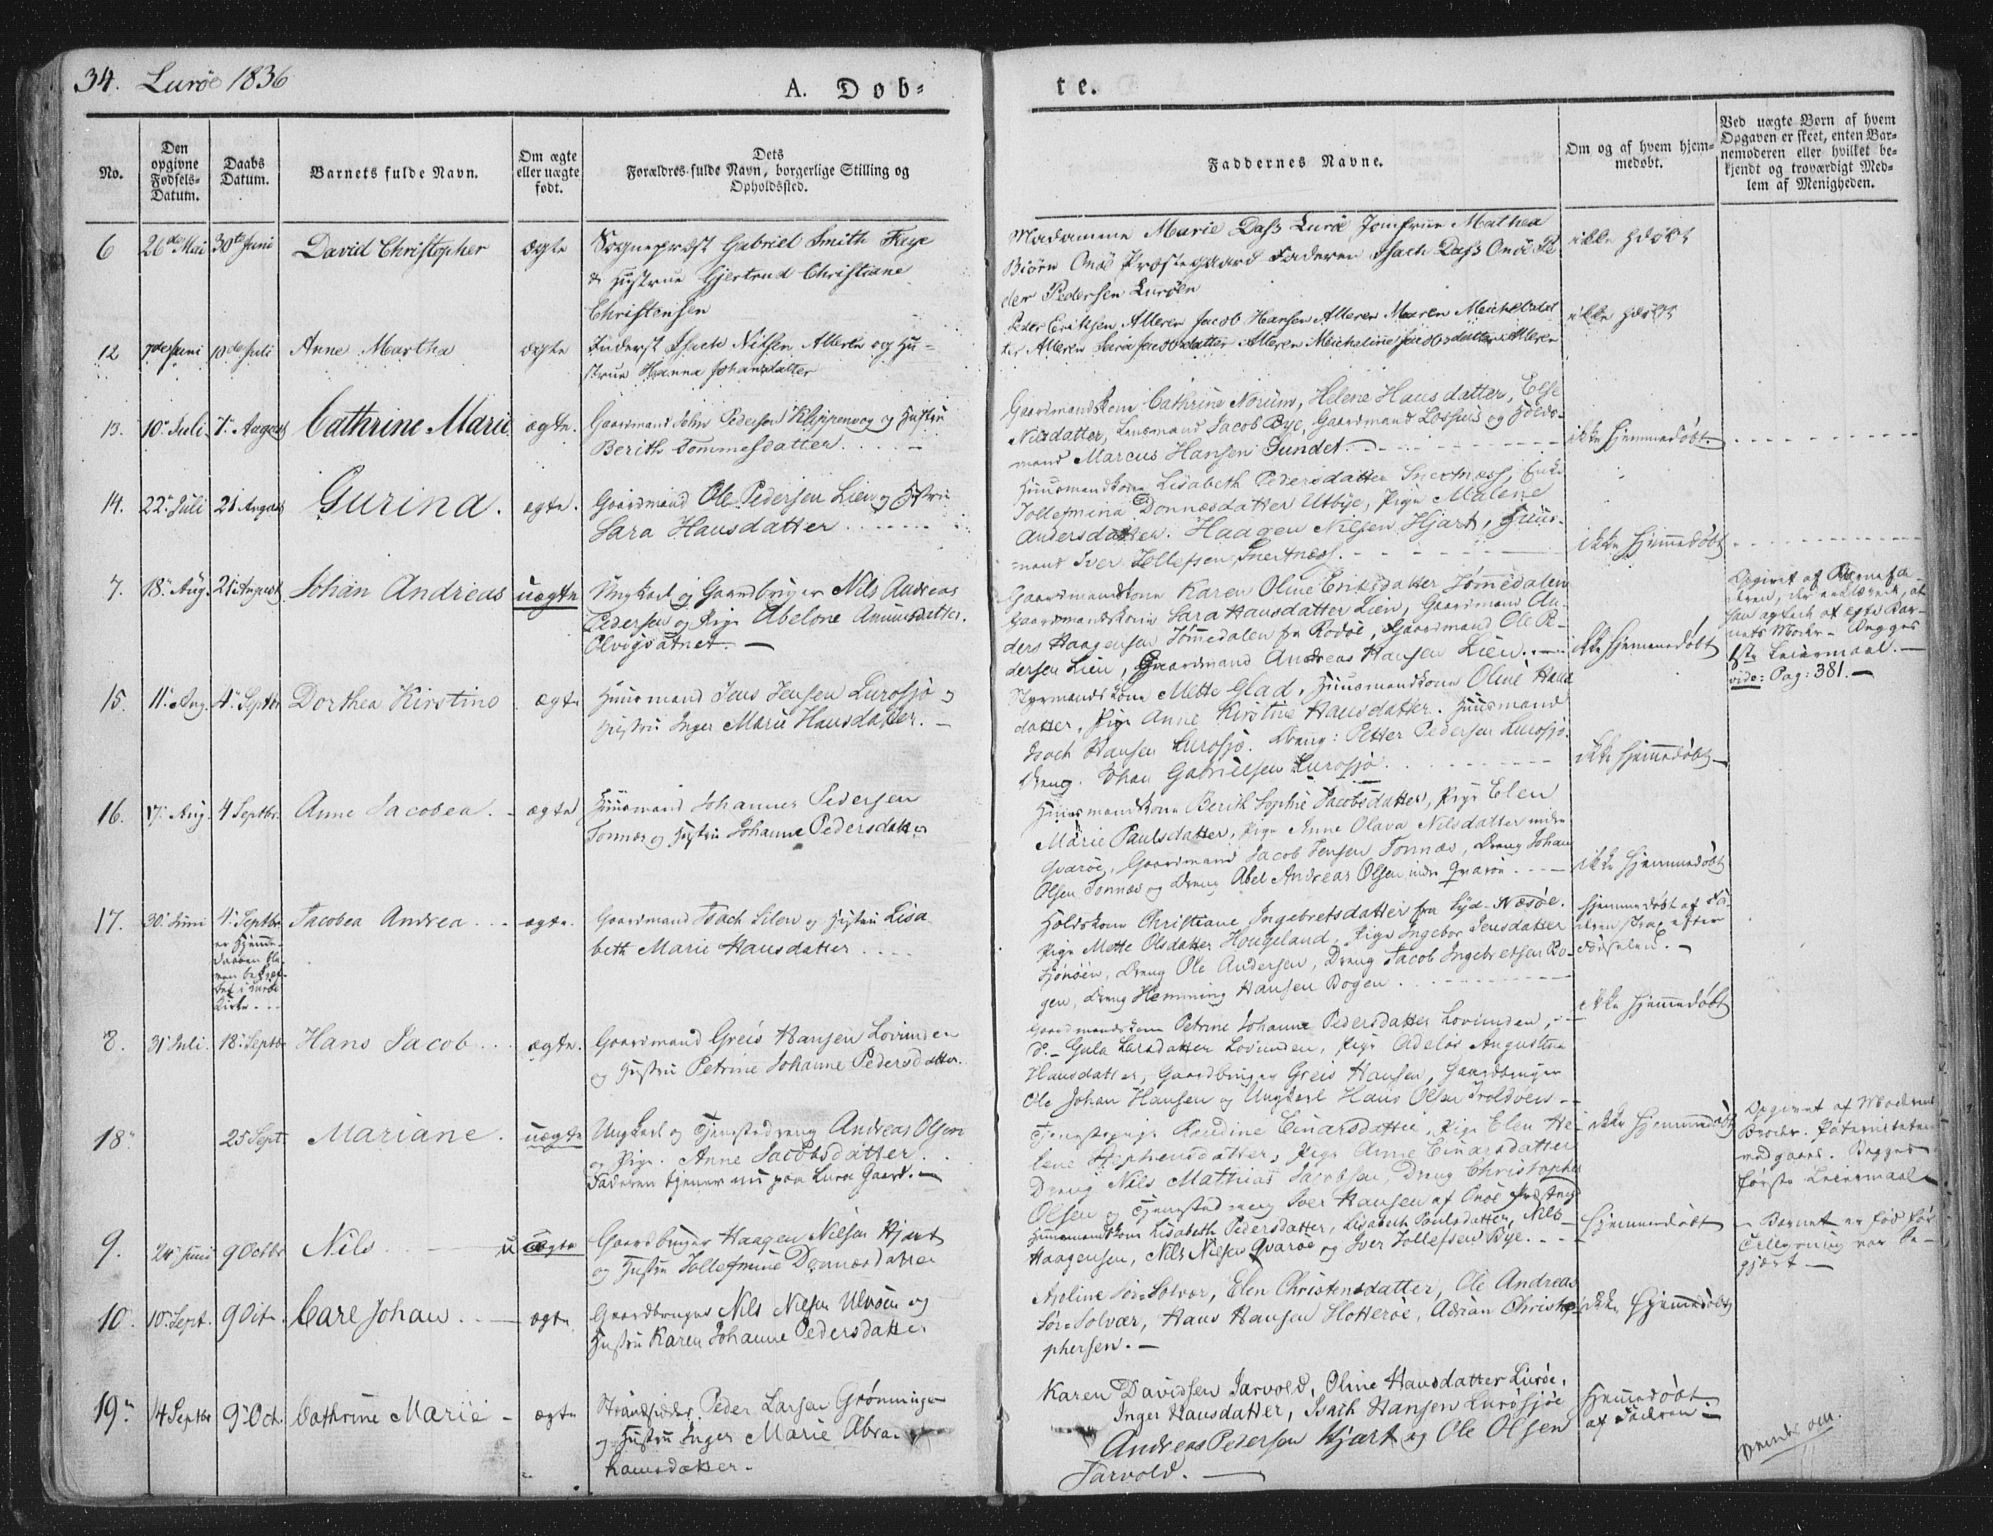 34. Lurøe 1836
A. Døb-
te.
No.
Den opgivne Fødsels-Datum.
Daabs Datum.
Barnets fulde Navn.
Om ægte eller uægte født.
Dets Forældres fulde Navn, borgerlige Stilling og Opholdssted.
Faddernes Navne.
Om og af hvem hjemmedøbt.
Ved uægte Børn af hvem
Opgaven er skeet, enten Bar-
nemoderen eller hvilket be-
kjendt og troværdigt Med-
lem af Menigheden.
6 26de Mai 30te Juni David Christopher ægte Sognepræst Gabriel Smith Faye
& Hustrue Gjertrud Christiane
Christensen
Madamme Marie Dass Lurøe Jomfrue Mathea
Biørn Onøe Præstegaard Faderen Isach Dass Onøe Pe
der Pedersen Lurøen
ikke hdøbt
12 7de Juni 10de Juli Anne Martha ægte Inderst Isach Nilsen Alleren og Hu-
strue Hanna Johansdatter
Peder Eriksen Alleren Jacob Hansen Alleren Maren Michelsdat
ter Alleren Sara Jacobsdatter Alleren Micheline Jacobsdatter Alleren
ikke hdøbt
13. 10. Juli. 7. August Cathrine Marie ægte. Gaardmand John Pedersen Klippenvog og Hustru
Berith Tommesdatter.
Gaardmandskone Cathrine Norum, Helene Hansdatter, Else
Nilsdatter, Lensmand Jacob Bye, Gaardmand Lossius og Holds-
mand Marcus Hansen Sundet.
ikke hjemmedøbt.
14. 22. Juli 21 August Gurina. ægte. Gaardmand Ole Pedersen Lien og Hstru
Sara Hansdatter
Huusmandskone Lisabeth Pedersdatter Snertnæss, Enke
Tollefmina Donnæsdatter Utbye, Pige Malene
Andersdatter. Haagen Nilsen Hjart, Huus-
mand Iver Tollefsen Snertnæss.
ikke hjemmedøbt
7. 18. Aug. 21 August Johan Andreas uægte Ungkarl og Gaardbruger Nils Andreas
Pedersen og Pige Abelone Amunsdatter.
Olvigvatnet.
Gaardmandskone Karen Oline Eriksdatter Tømedalen
Gaardmandskone Sara Hansdatter Lien, Gaardmand An-
ders Haagensen Tømedalen fra Rødøe, Gaardmand Ole Pe-
dersen Lien, Gaardmand Andreas Hansen Lien.
ikke hjemmedøbt
Opgivet af Barnefa-
deren, der erklærede, at
han agtede at egte Bar-
nets Moder. Begges
1ste Leiermaal.
vide: Pag: 381.
15. 11. Aug. 4. Septbr Dorthea Kirstina ægte Huusmand Jens Jensen Lurosjø og
Hustru Inger Marie Hansdatter.
Styrmandskone Mette Glad, Huusmandskone Oline Hans
datter, Pige Anne Kirstine Hansdatter. Huusmand
Isach Hansen Lurosjø. Dreng: Petter Pedersen Lurosjø.
Dreng. Johan Gabrielsen Lurosjø.
ikke hjemmedøbt
16. 17. Aug. 4 Septbr. Anne Jacobea. ægte Huusmand Johannes Pedersen
Tonnæs og Hustru Johanna Pedersdatter
Huusmandskone Berith Sophie Jacobsdatter, Pige Elen
Marie Paulsdatter, Pige Anne Olava Nilsdatter indre
Qvarøe, Gaardmand Jacob Jensen Tonnæs, Dreng Johan
Olsen Tonnæs og Dreng Abel Andreas Olsen, indre Qvarøe.
ikke hjemmedøbt
17. 30. Juni 4. Septbr.
er Hjemme-
daaben ble-
ven bekræf-
tet i Lurøe
Kirke.
Jacobea Andrea ægte. Gaardmand Isach Silen og Hustru Lisa
beth Marie Hansdatter
Holdskone Christiane Ingebretsdatter fra Syd-Næsøe.
Pige Mette Olsdatter Hougeland, Pige Ingebor Jensdatter
Hjonøen, Dreng Ole Andersen, Dreng Jacob Ingebretsen Bo-
gen, Dreng Hemming Hansen Bogen.
hjemmedøbt af Fa-
deren strax efter
Fødselen.
8. 31. Juli. 18. Septbr Hans Jacob ægte. Gaardmand Greis Hansen Lovunden
og Hustru Petrine Johanne Pedersdatter.
Gaardmandskone Petrine Johanne Pedersdatter Lovunden,
Do. Gula Larsdatter Lovunden, Pige Adelos Augustine
Hansdatter, Gaardbruger Greis Hansen, Gaardbruger
Ole Johan Hansen og Ungkarl Hans Olsen Troldøen
ikke hjemmedøbt
18. 25 Sept. Mariane. uægte Ungkarl og Tjenestedreng Andreas Olsen
og Pige. Anne Jacobsdatter.
Faderen tjener nu paa Lurøe Gaard.
Tjenestepige Randine Einarsdatter, Pige Elen He-
lene Stephensdatter, Pige Anne Einarsdatter
Dreng Nils Mathias Jacobsen, Dreng Christopher
Olsen og Tjenestedreng Iver Hansen af Onøe Præstegd
ikke hjemmedøbt
Opgivet af Moderens
Broder. Paterniteten
vedgaaes. Begges
første Leiermaal
9. 24. Juni 9 Octbr Nils. uægte Gaardbruger Haagen Nielsen Hjart
og Hustru Tollefmine Dønnesdatter
Huusmandskone Lisabeth Pedersdatter, Lisabeth Poulsdatter, Nils
Haagensen, Nils Nielsen Qvarøe og Iver Tollefsen Bye.
hjemmedøbt
Barnet er fød før
Tillysning var be-
gjært
10. 10. Sept. 9 Oct. Carl Johan. ægte Gaardbruger Nils Nielsen Ulvøen og
Hustru Karen Johanne Pedersdatter
Axeline Sør-Solvær, Elen Christensdatter, Ole Andreas
Sør-Solvær, Hans Hansen Slotterøe, Adrian Christo-
phersen.
ikke hjemmedøbt
19. 14 Septbr 9. Oct. Cathrine Marie ægte Strandsidder Peder Larsen Grønningen
og Hustru Inger Marie Abra-
hamsdatter.
Karen Davidsen Jarvold, Oline Hansdatter Lurøe,
Inger Hansdatter, Isach Hansen Lurøsjøe
Andreas Petersen Hjart og Ole Olsen
Jarvold.
hjemmedøbt
af Faderen.
Vende om.